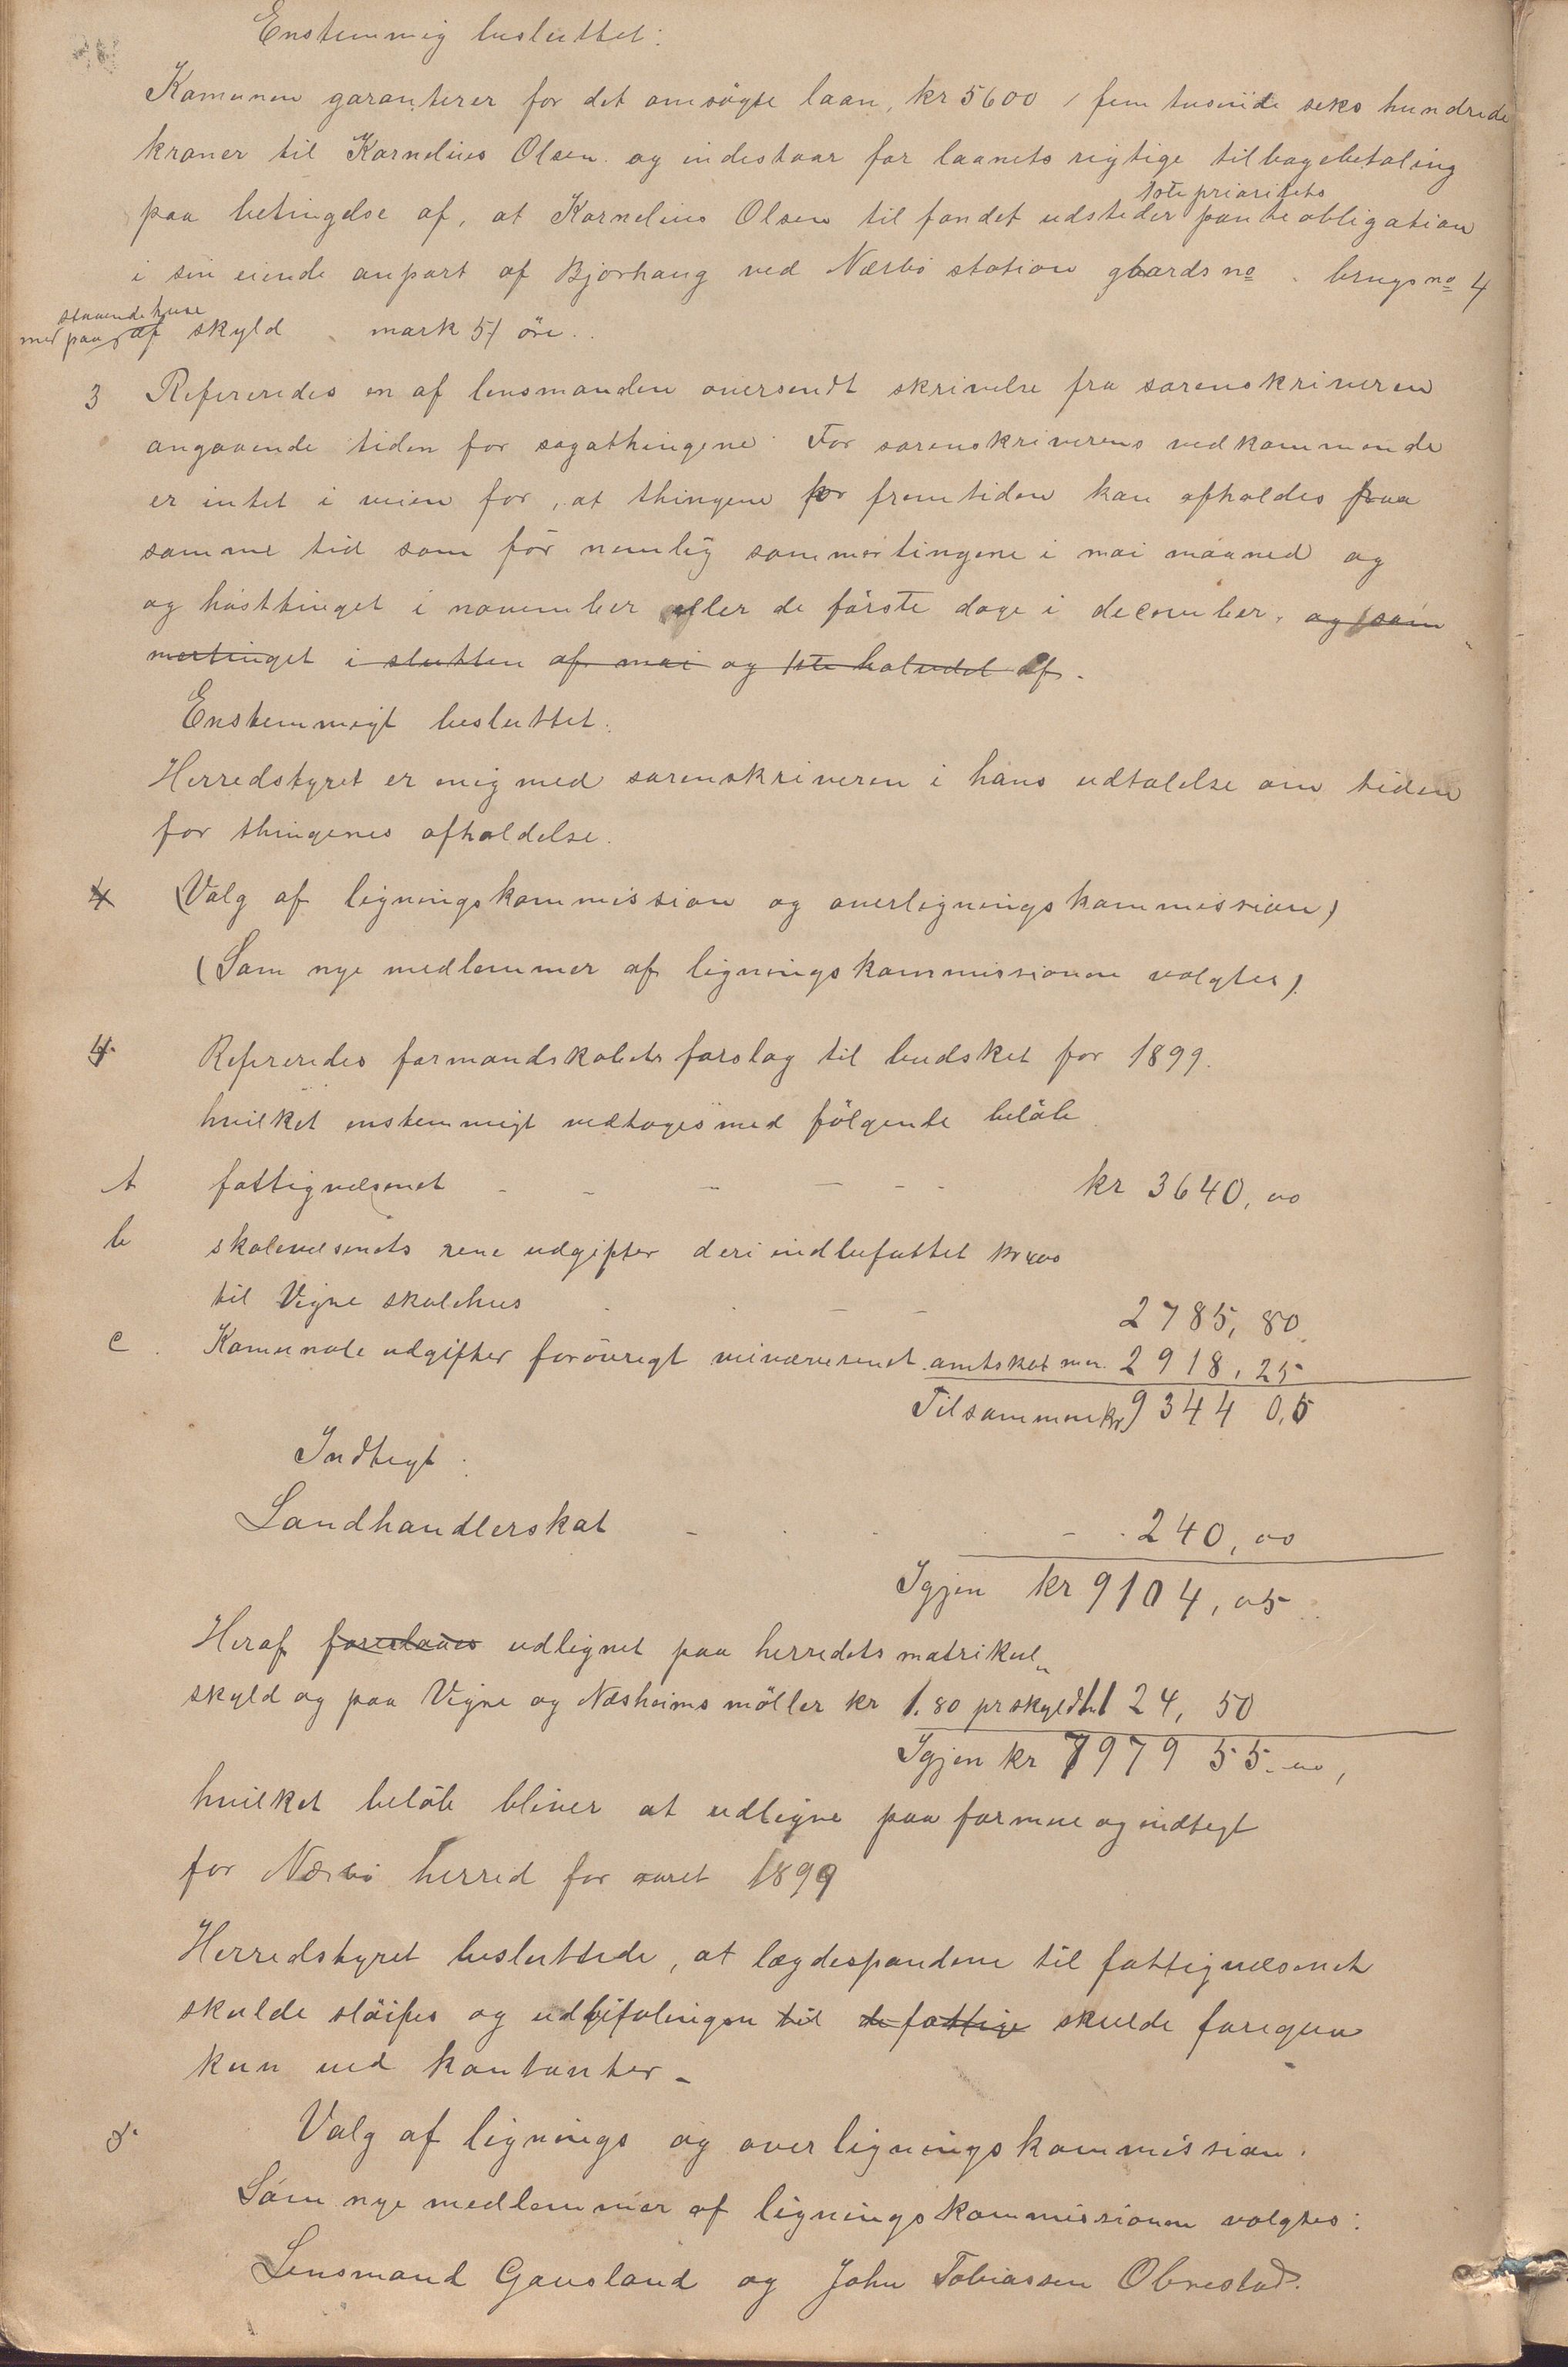 Enstemmig besluttet:
Komunen garanterer for det omsøgte laan, kr 5600 / fem tusinde seks hundrede
kroner til Kornelius Olsen og indestaar for laanets rigtige tilbagebetaling
1ste prioritets
paa betingelse af, at Kornelius Olsen til fondet udsteder panteobligation
i sin eiende anpart af Bjorhaug ved Nærbø station gaards no . brugs no 4
staaende huse
med paa af skyld mark 51 øre.
3 Refereredes en af lensmanden oversendt skrivelse fra sorenskriveren
angaaende tiden for sagathingene. For sorenskriverens vedkommende
er intet i veien for, at thingene for fremtiden kan afholdes paa
samme tid som før nemlig sommertingene i mai maaned og
og høsttinget i november eller de første dage i december, og som
mertinget i slutten af mai og 1ste halvdel af.
Enstemmigt besluttet.
Herredstyret er enig med sorenskriveren i hans udtalelse om tiden
for thingenes afholdelse.
4 (Valg af ligningskommission og overligningskommission)
(Som nye medlemmer af ligningskommissionen valgtes)
4 Refereredes formandskabets forslag til budsket for 1899.
hvilket enstemmigt vedtoges med følgende beløb
A fattigvæsenet - - - - - - kr 3640,00
b skolevæsenets rene udgifter deri indbefattet kr 400
til Vigre skolehus - - 2785,80
c. Komunale udgifter forøvrigt veivæsenet amtskat m.v. 2918,25
Tilsammen kr 9344 0,5
Indtegt:
Landhandlerskat - - 240,00
Igjen kr 9104,05
Heraf foreslaaes udlignet paa herredets matrikul„
skyld og paa Vigre og Næsheims møller kr 1.80 pr skyldm. 1124,50
Igjen kr 7979 55
hvilket beløb bliver at udligne paa formue og indtegt
for Nærbø herred for aaret 1899
Herredstyret besluttede, at lægdespandene til fattigvæsenet
skulde sløifes og udbetalingen til de fattige skulde foregaa
kun ved kontanter -
5. Valg af lignings og overligningskommission.
Som nye medlemmer af ligningskommissionen valgtes:
Lensmand Gausland og John Tobiassen Obrestad.